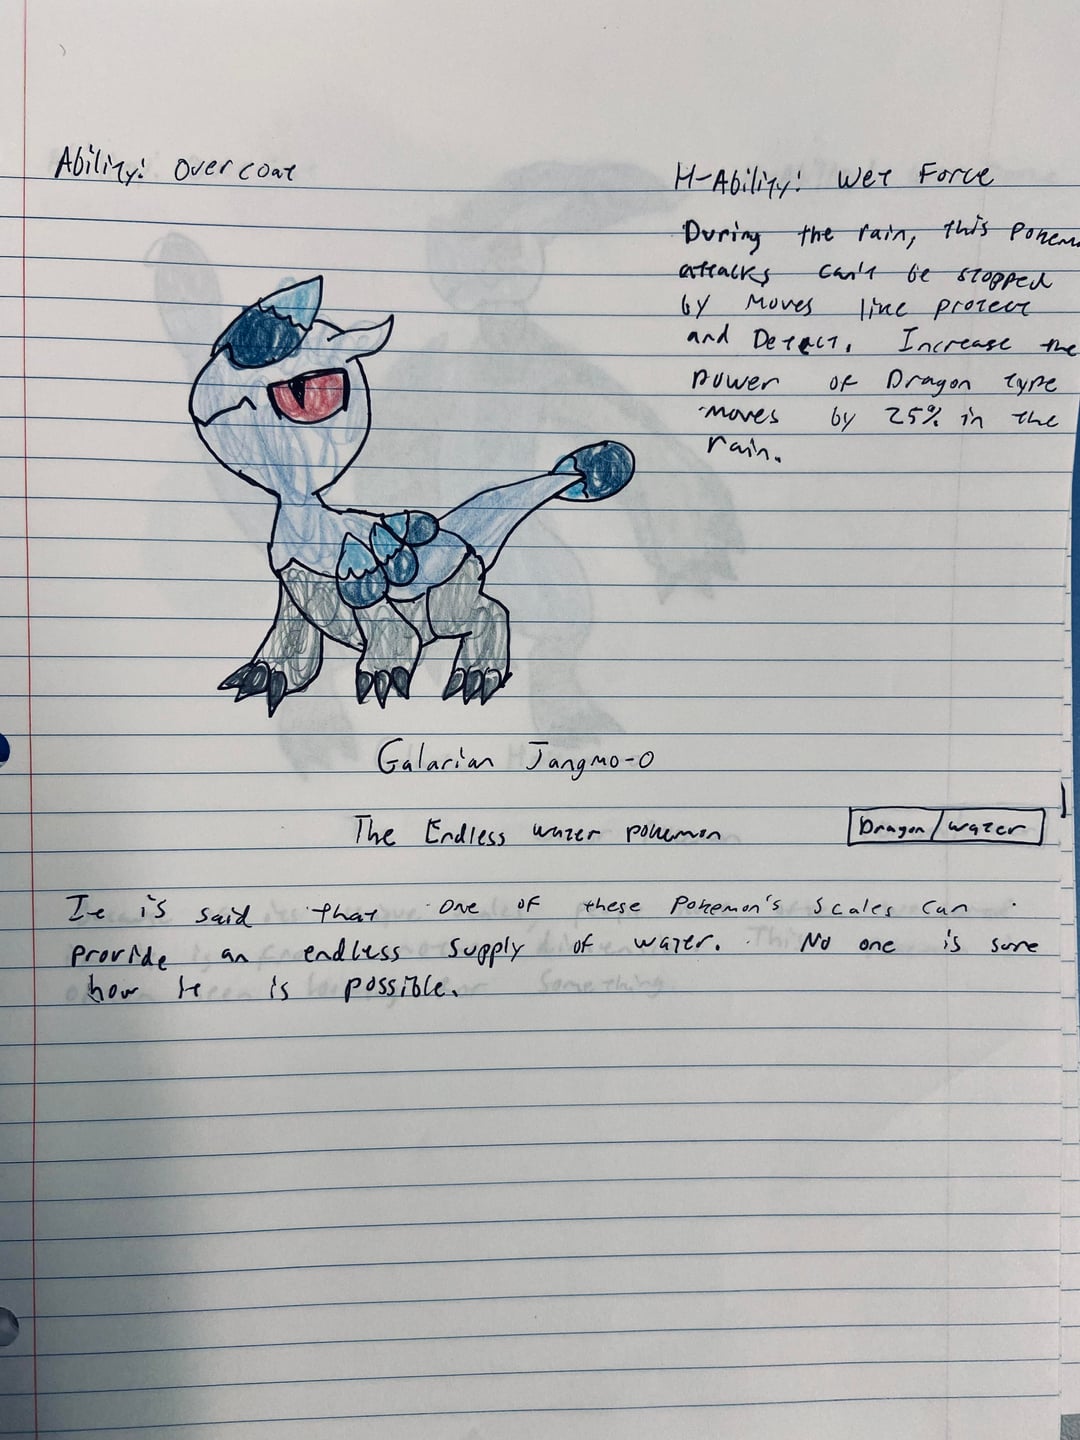 Ability: Overcoat
H-Ability: Wet Force
During the rain, this Pokem
attacks can't be stopped
by moves like protect
and Detect. Increase the
power of Dragon type
moves by 25% in the
rain.
Galarian Jangmo-o
The Endless water pokemon
Dragon/water
It is said that one of these Pokemon's scales can
provide an endless supply of water. No one is sure
how it is possible.